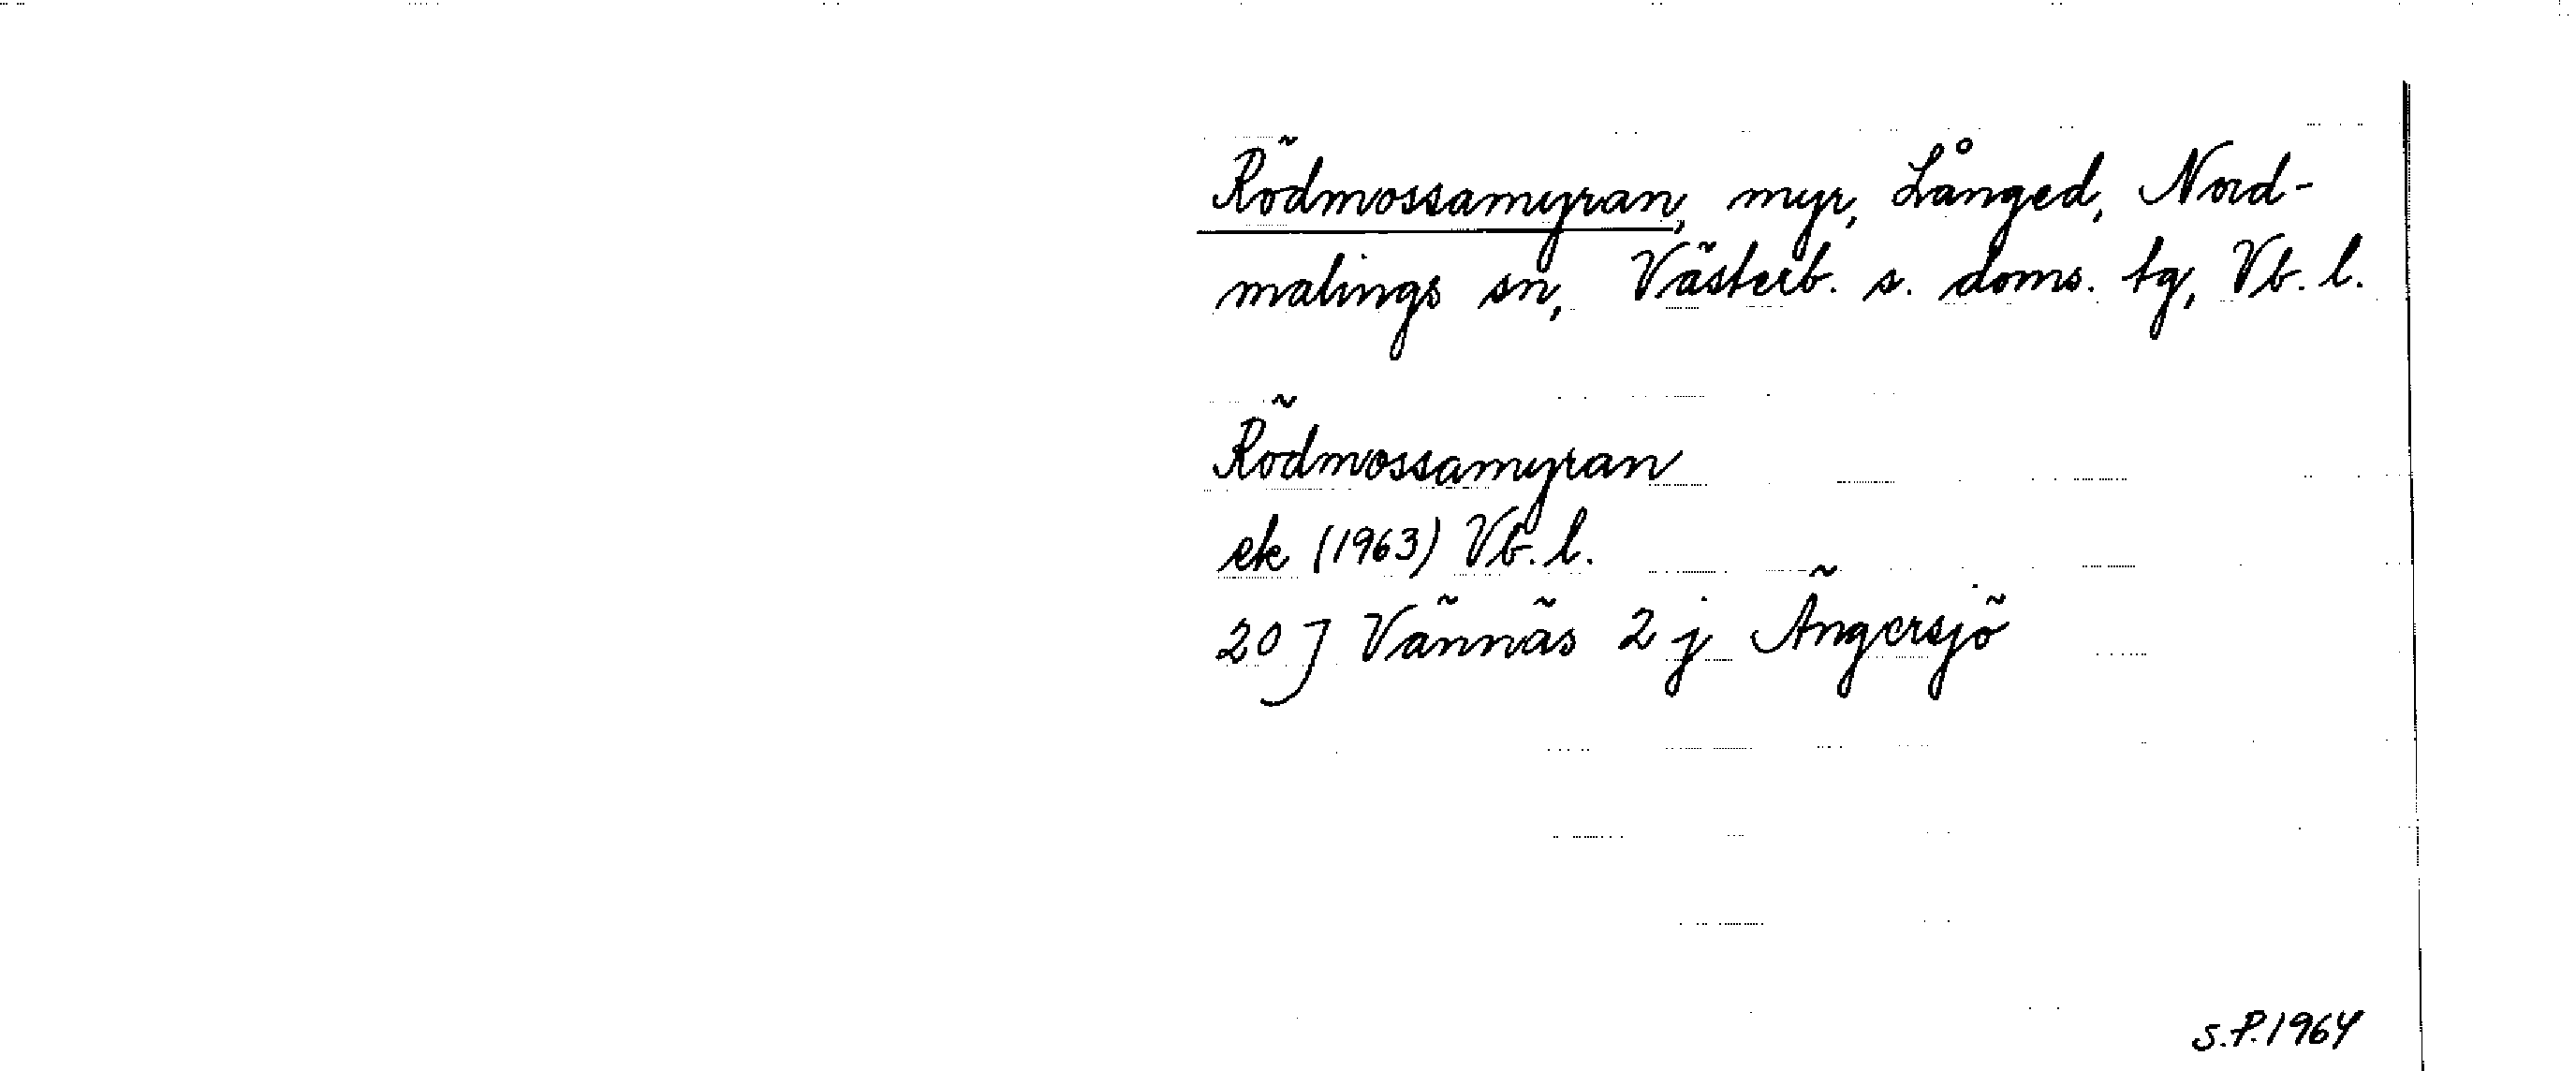 Rödmossamyran, myr, Långed, Nord-
malings sn, Västerb. s. doms. tg, Vb. l.
Rödmossamyran
ek (1963) Vb. l.
20 J Vännäs 2 j Ängersjö
S.P. 1964